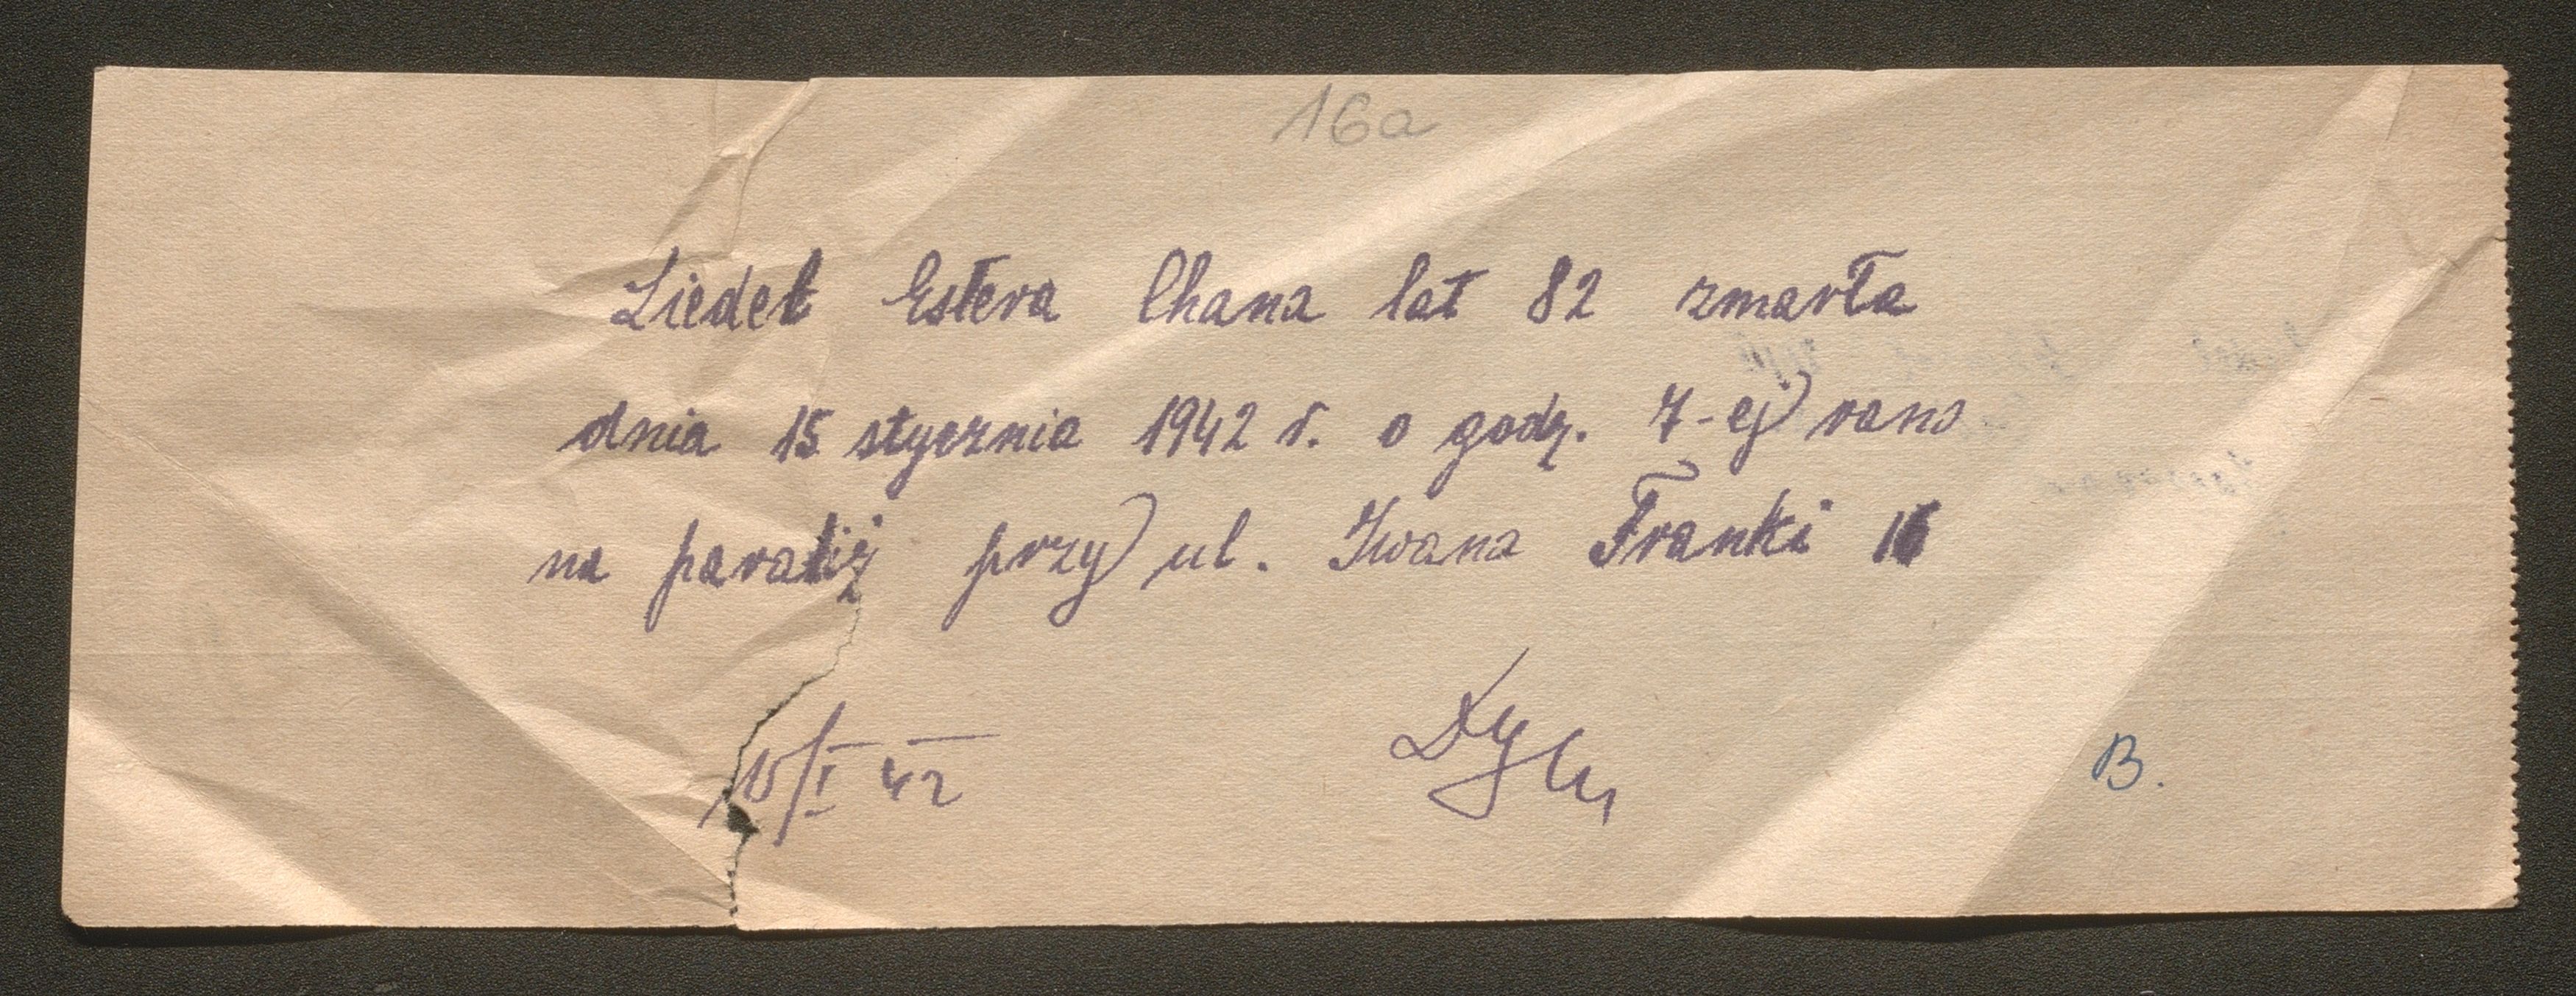 16a
Liedek Estera Chana lat 82 zmarła
dnia 15 stycznia 1942 r. o godz. 7-ej rano
na paraliż przy ul. Iwana Franki 16
15/I 42
B.